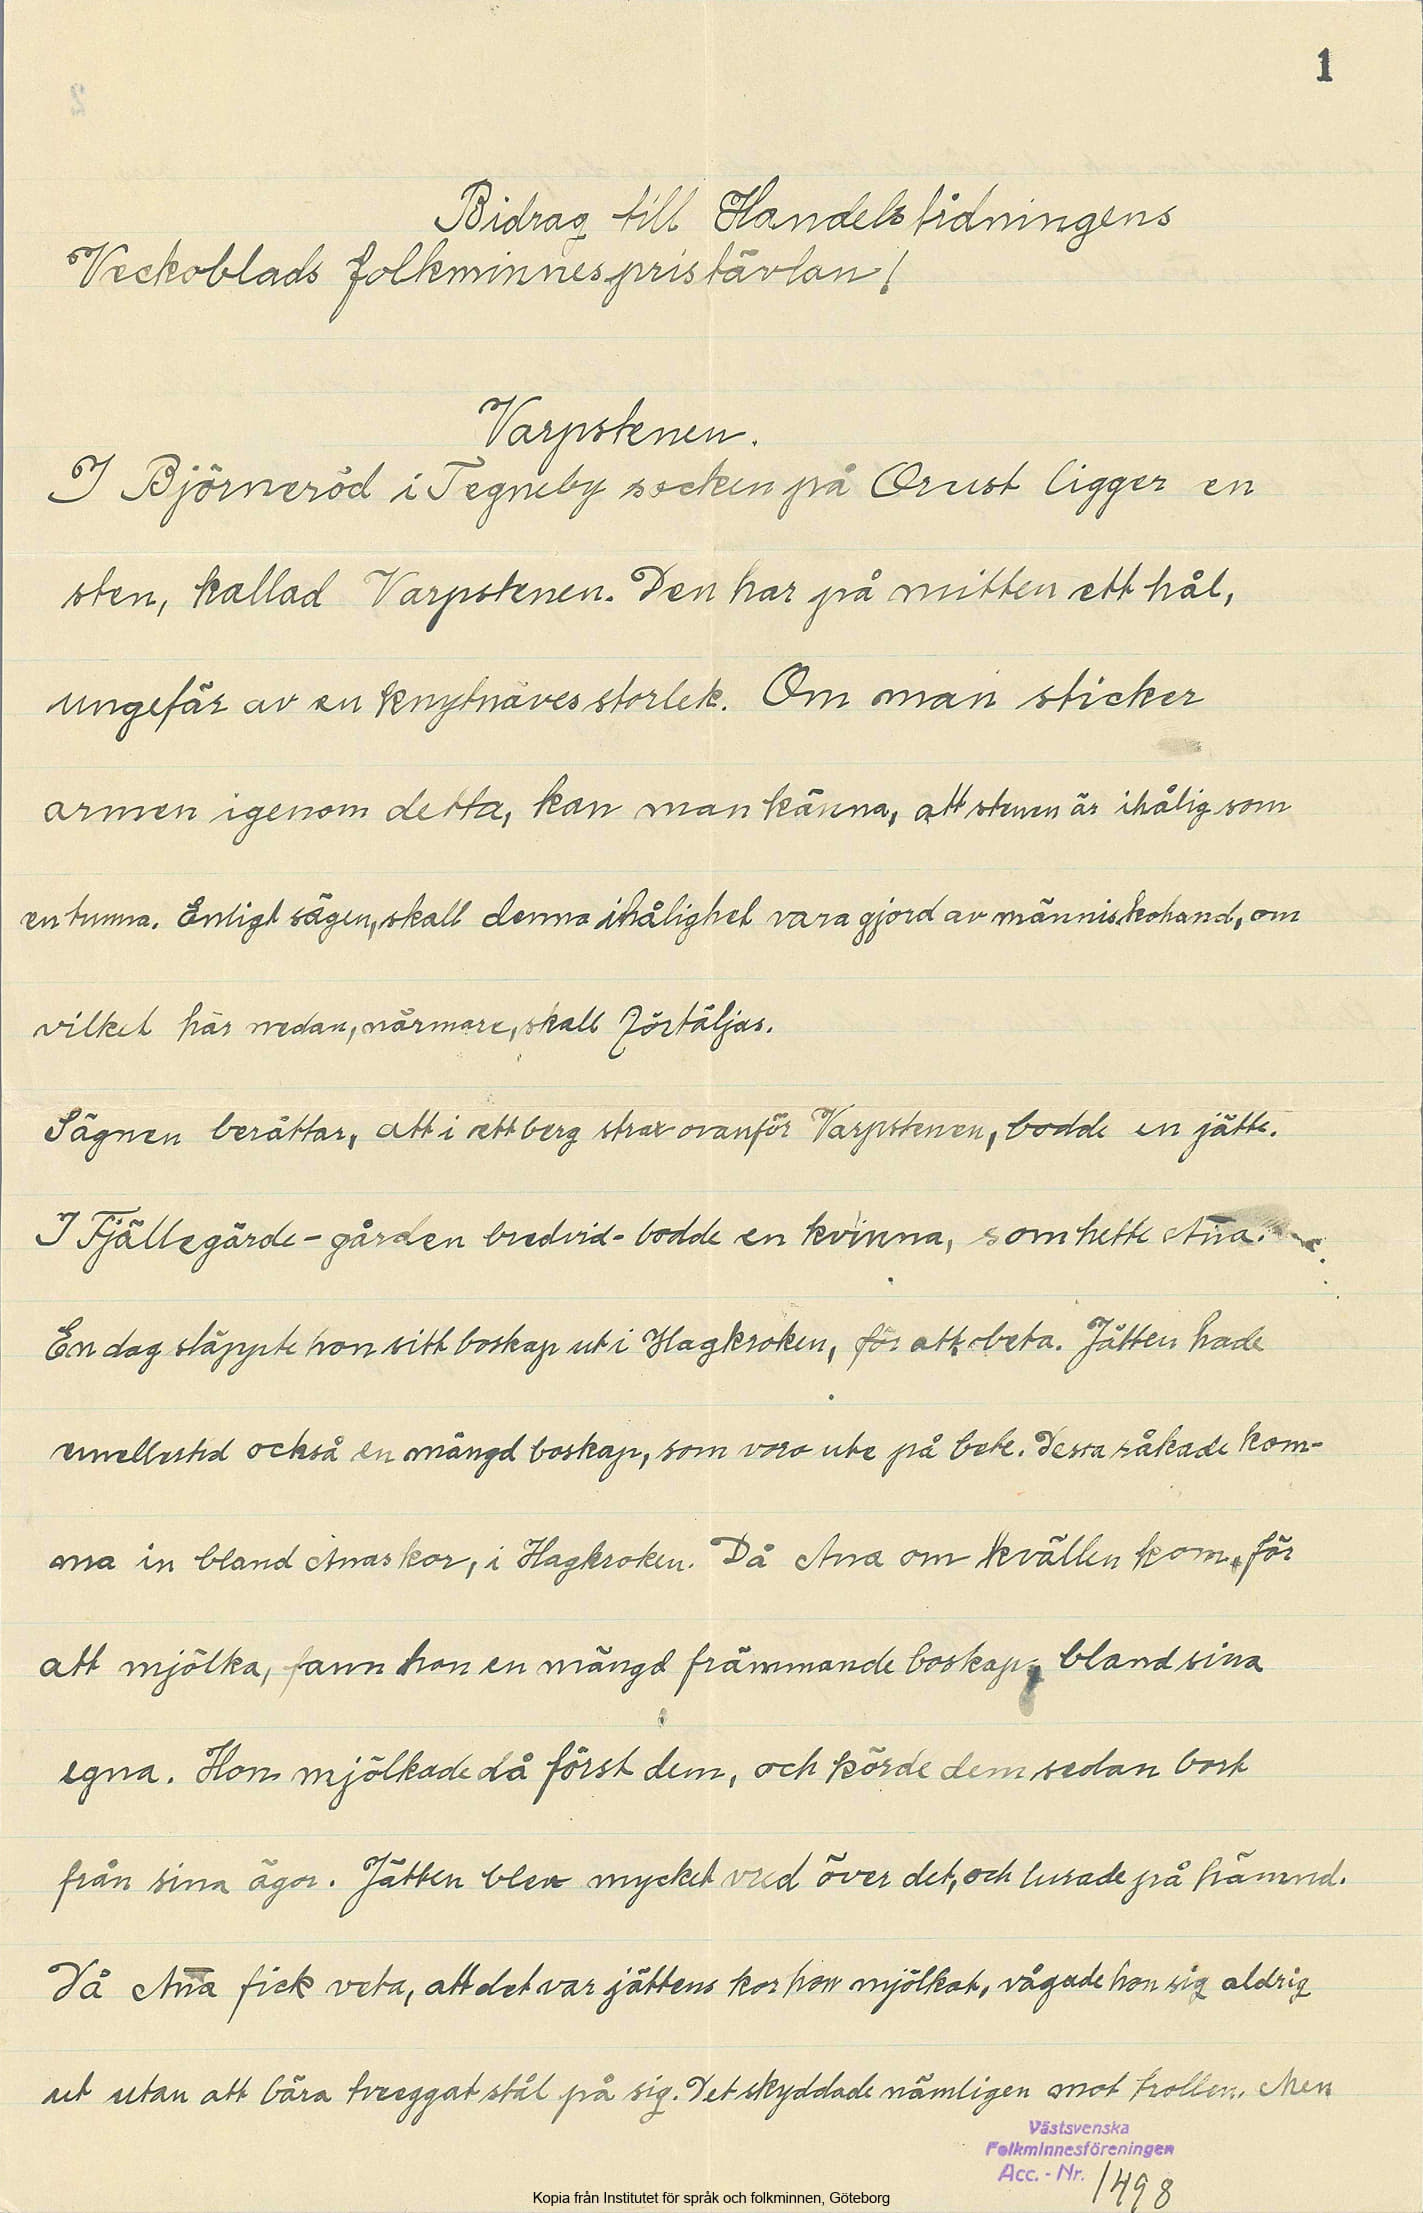 1
Bidrag till Handelstidningens
Veckoblads folkminnespristävlan!
Varpstenen.
I Björneröd i Tegneby socken på Orust ligger en
sten, kallad Varpstenen. Den har på mitten ett hål,
ungefär av en knytnäves storlek. Om man sticker
armen igenom detta, kan man känna, att stenen är ihålig som
en tunna. Enligt sägen, skall denna ihålighet vara gjord av människohand, om
vilket här nedan, närmare, skall förtäljas.
Sägnen berättar, att i ett berg strax ovanför Varpstenen, bodde en jätte.
I Fjällegärde - gården bredvid - bodde en kvinna, som hette Ana.
En dag släppte hon sitt boskap ut i Hagkroken, för att beta. Jätten hade
emellertid också en mängd boskap, som voro ute på bete. Dessa råkade kom-
ma in bland Anas kor, i Hagkroken. Då Ana om kvällen kom, för
att mjölka, fann hon en mängd främmande boskap, bland sina
egna. Hon mjölkade då först dem, och körde dem sedan bort
från sina ägor. Jätten blev mycket vred över det, och lurade på hämnd.
Då Ana fick veta, att det var jättens kor hon mjölkat, vågade hon sig aldrig
ut utan att bära tveeggat stål på sig. Det skyddade nämligen mot trollen. Men
Västsvenska
Folkminnesföreningen
Acc. - Nr. 1498
Kopia från Institutet för språk och folkminnen, Göteborg